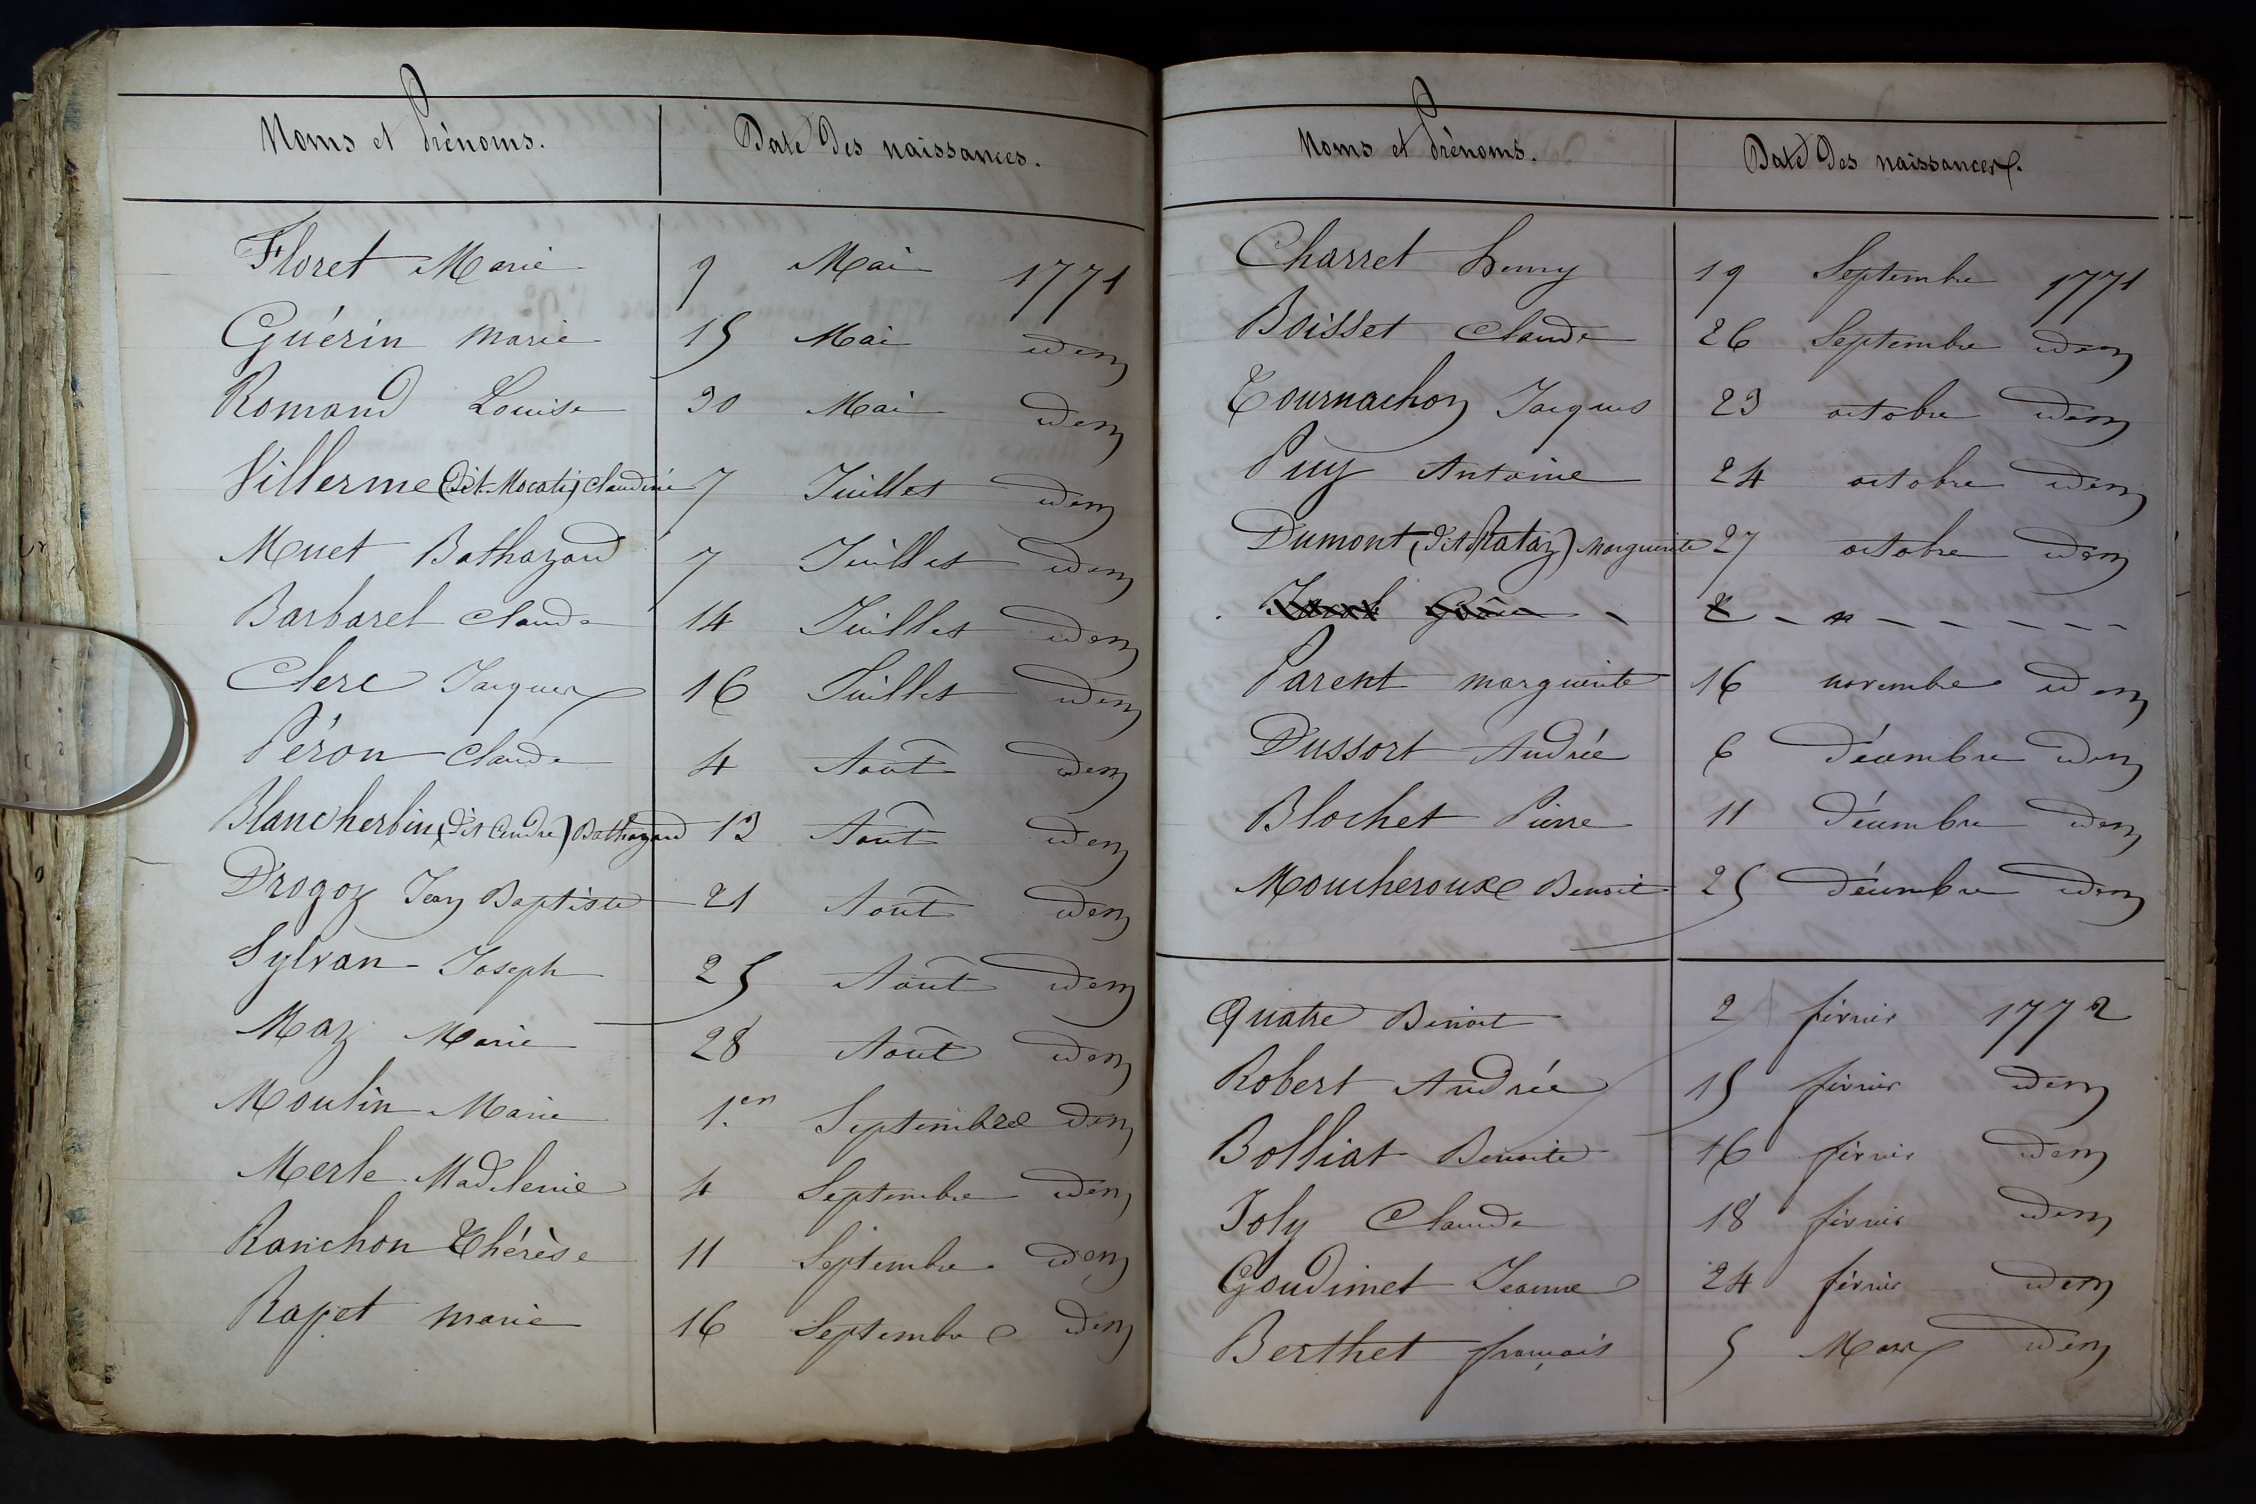 Noms et Prénoms. Date des naissances.
Floret Marie 9 Mai 1771
Guérin Marie 15 Mai idem
Romand Louise 30 Mai idem
Villerme (dit Mocati) Claudine 7 Juillet idem
Muet Bathazard 7 Juillet idem
Barbaret Claude 14 Juillet idem
Clerc Jacques 16 Juillet idem
Péron Claude 4 Août idem
Blancherbin (dit Cendre) Bathazard 13 Août idem
Drogoz Jean Baptiste 21 Août idem
Sylvan Joseph 25 Août idem
Maz Marie 28 Août idem
Moulin Marie 1.er Septembre idem
Merle Madeleine 4 Septembre idem
Ranchon Thérèse 11 Septembre idem
Rapet Marie 16 Septembre idem
Noms et Prénoms. Date des naissances.
Charret Henry 19 Septembre 1771
Boisset Claude 26 Septembre idem
Tournachon Jacques 23 octobre idem
Puy Antoine 24 octobre idem
Dumont (dit Rataz) Marguerite 27 octobre idem
Parent Marguerite 16 novembre idem
Dussort Andrée 6 décembre idem
Blochet Pierre 11 décembre idem
Moucheroux Benoit 25 décembre idem
Quatre Benoit 2 février 1772
Robert Andrée 15 février idem
Bolliat Benoite 16 février idem
Joly Claude 18 février idem
Goudimet Jeanne 24 février idem
Berthet françois 5 Mars idem